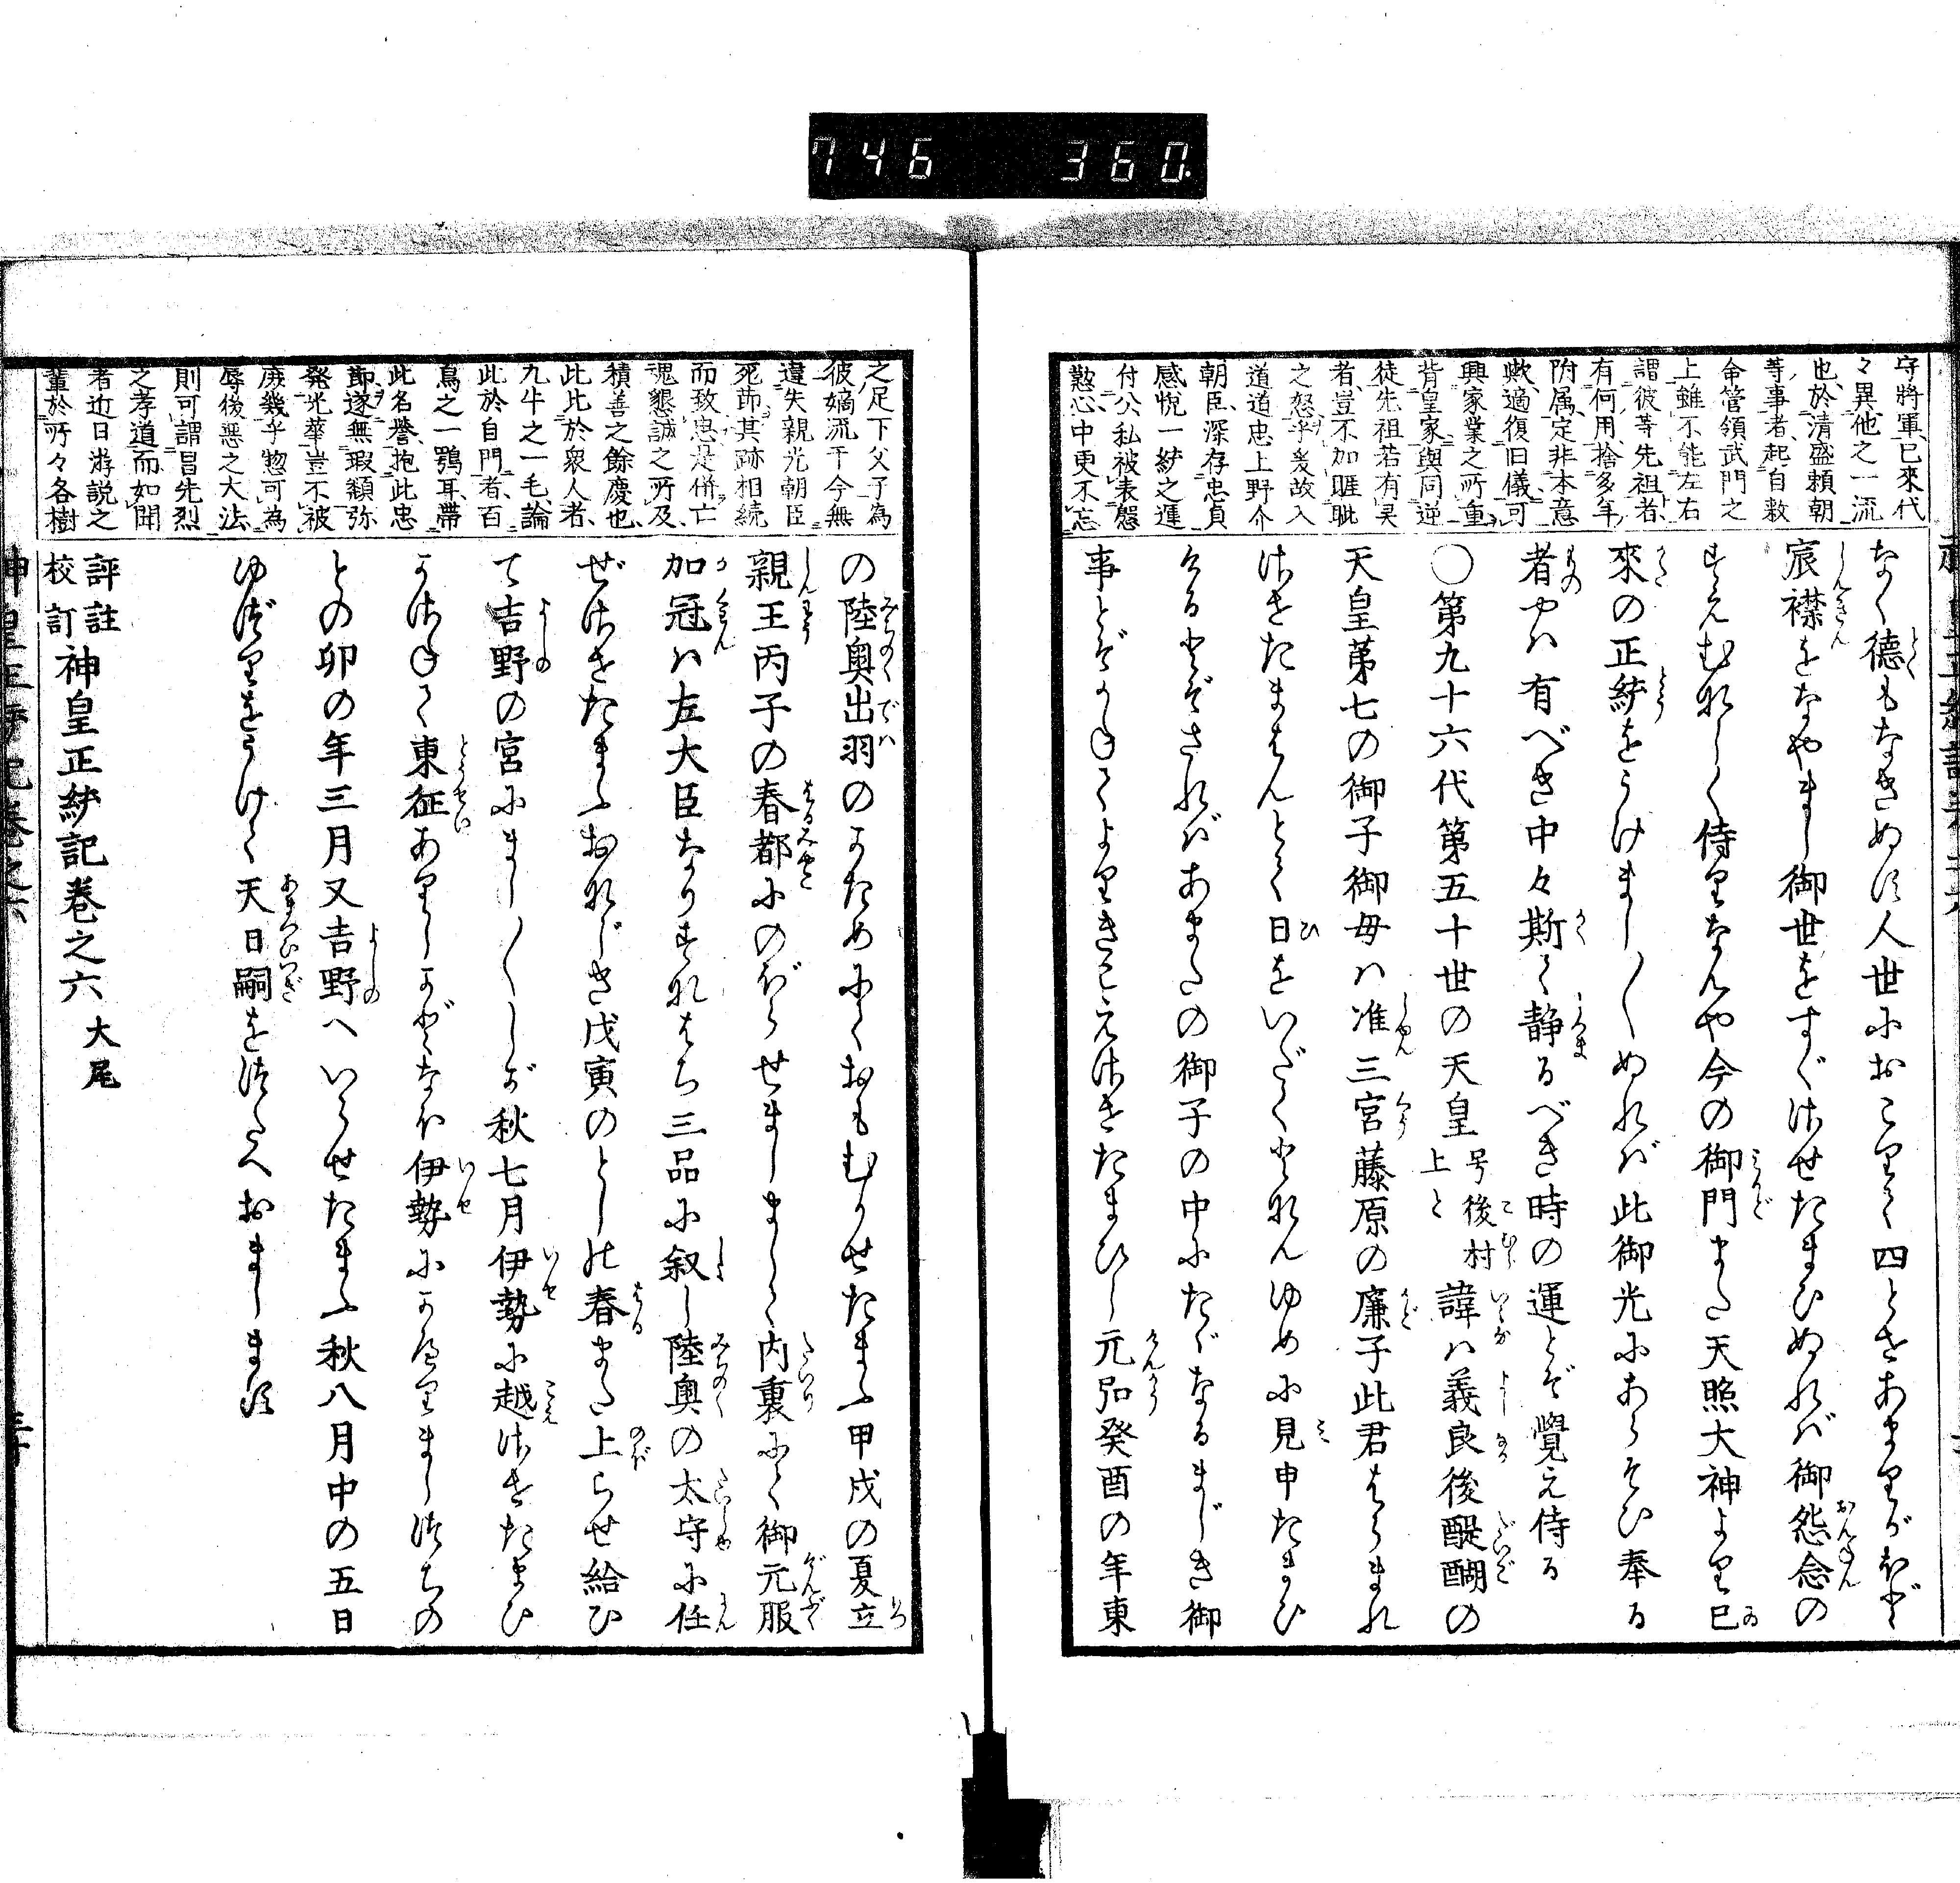 746 360.
守將軍已來代
々異他之一流
也於清盛頼朝
等事者起自敕
命管領武門之
上雖不能左右
謂彼等先祖者
有何用捨多年
附属定非本意
歟適復旧儀可
興家業之所重
背皇家與同逆
徒先祖若有昊
者豈不加睚眦
之怒乎爰故入
道道忠上野介
朝臣深存忠貞
感悦一統之運
付公私被表慇
懃心中更不忘
なく德もなきぬす人世におこりて四とせあまりがほど
宸襟をなやまし御世をすぐさせたまひぬれバ御怨念の
すゑむなしく侍りなんや今の御門また天照大神より已
來の正統をうけまし〱ぬれバ此御光にあらそひ奉る
者やハ有べき中々斯て静るべき時の運とぞ覺え侍る
〇第九十六代第五十世の天皇
号後村
上と
諱ハ義良後醍醐の
天皇第七の御子御母ハ准三宮藤原の廉子此君はらまれ
させたまはんとて日をいだくとなんゆめに見申たまひ
けるとぞされバあまたの御子の中にたゞなるまじき御
事とぞかねてよりきこえさせたまひし元弘癸酉の年東
之足下父子為
彼嫡流于今無
違失親光朝臣
死節其跡相続
而致忠是併亡
魂懇誠之所及
積善之餘慶也
此比於衆人者
九牛之一毛論
此於自門者百
鳥之一鶚耳帶
此名譽抱此忠
節遂無瑕纇弥
発光華豈不被
庶幾乎惣可為
辱後悪之大法
則可謂昌先烈
之孝道而如聞
者近日游説之
輩於所々各樹
の陸奥出羽のかためにておもむかせたまふ甲戌の夏立
親王丙子の春都にのぼらせましまして内裏にて御元服
加冠ハ左大臣なりすなはち三品に叙し陸奥の太守に任
ぜさせたまふおなじき戊寅のとしの春また上らせ給ひ
て吉野の宮にまし〱しが秋七月伊勢に越させたまひ
かさねて東征ありしかどなほ伊勢にかへりましつちの
との卯の年三月又吉野へいらせたまふ秋八月中の五日
ゆづりをうけて天日嗣をつたへおまします
評註
校訂
神皇正統記巻之六 大尾